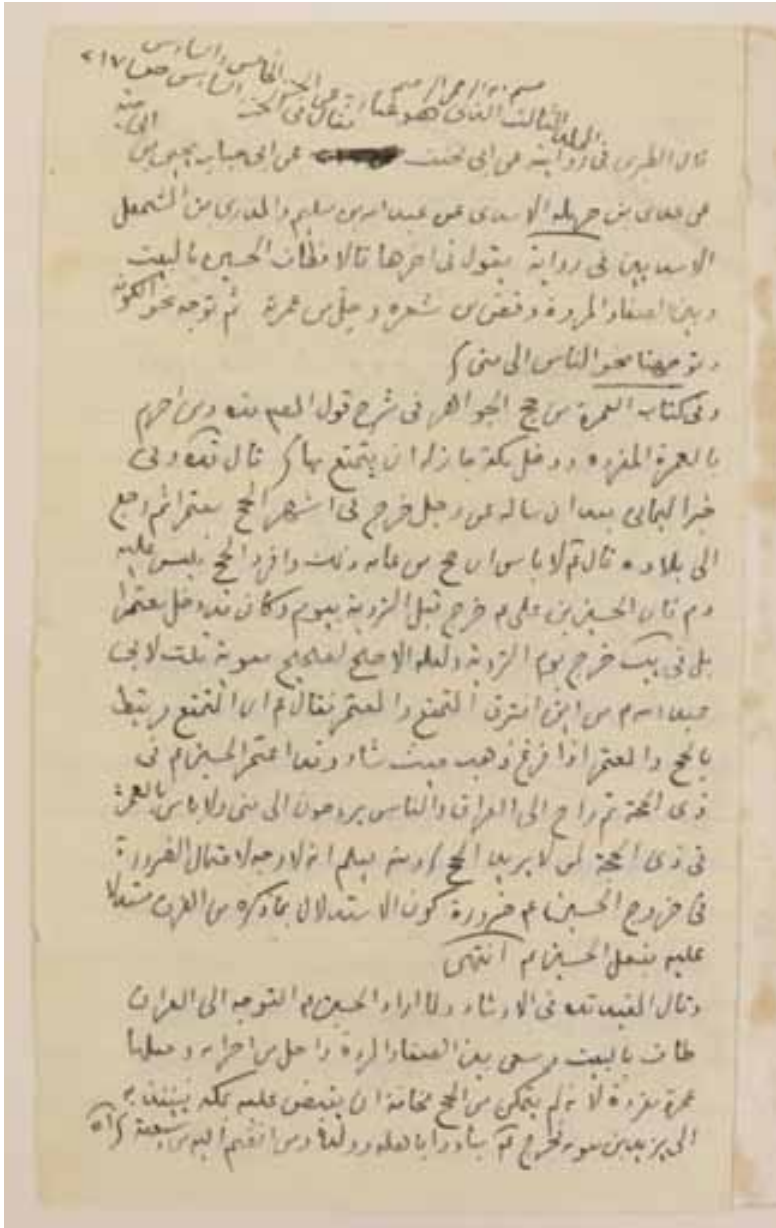 بسم الله الرحمن الرحيم
المجلد الثالث الذي هو في الخامس والسادس ٢١٧
قال الطبري في روايته عن ابي مخنف عن ابي جناب يحيى بن ابي حية
عن عدي بن حرملة الاسدي عن عبد الله بن سليم والمذري بن المشمعل
الاسديين في رواية يقول في اخرها قالا فطاف الحسين بالبيت
وبين الصفا والمروة وقص من شعره وحل من عمرته ثم توجه نحو الكوفة
وتوجهنا نحو الناس الى منى
وفي كتاب العمرة من حج الجواهر في شرح قول المص قده ومن احرم
بالعمرة المفردة ودخل مكة جاز له ان يتمتع بها قال قده وفي
خبر اليماني بعد ان ساله عن رجل خرج في اشهر الحج معتمرا ثم رجع
الى بلاده قال ع لا باس وان حج من عامه ذلك وافرد الحج فليس عليه
دم فان الحسين بن علي ع خرج قبل التروية بيوم وكان قد دخل معتمرا
بل في خرج يوم التروية ولعله الاصح لصحيح معوية قلت لابي
عبد الله ع من اين افترق المتمتع والمعتمر فقال ع ان المتمتع مرتبط
بالحج والمعتمر اذا فرغ ذهب حيث شاء وقد اعتمر الحسين ع في
ذي الحجة ثم راح الى العراق والناس يروحون الى منى ولا باس بالعمرة
في ذي الحجة لمن لا يريد الحج ومنه يعلم انه لا وجه لاحتمال الضرورة
في خروج الحسين ع ضرورة كون الاستدلال بما ذكره من مستدلا
عليه بفعل الحسين ع انتهى
وقال المفيد قده في الارشاد ولما اراد الحسين ع التوجه الى العراق
طاف بالبيت وسعى بين الصفا والمروة واحل من احرامه وجعلها
عمرة مفردة لانه لم يتمكن من الحج مخافة ان يقبض عليه بمكة فينفذ به
الى يزيد بن معوية فخرج ع مبادرا باهله وولده ومن انضم اليه من شيعته اه